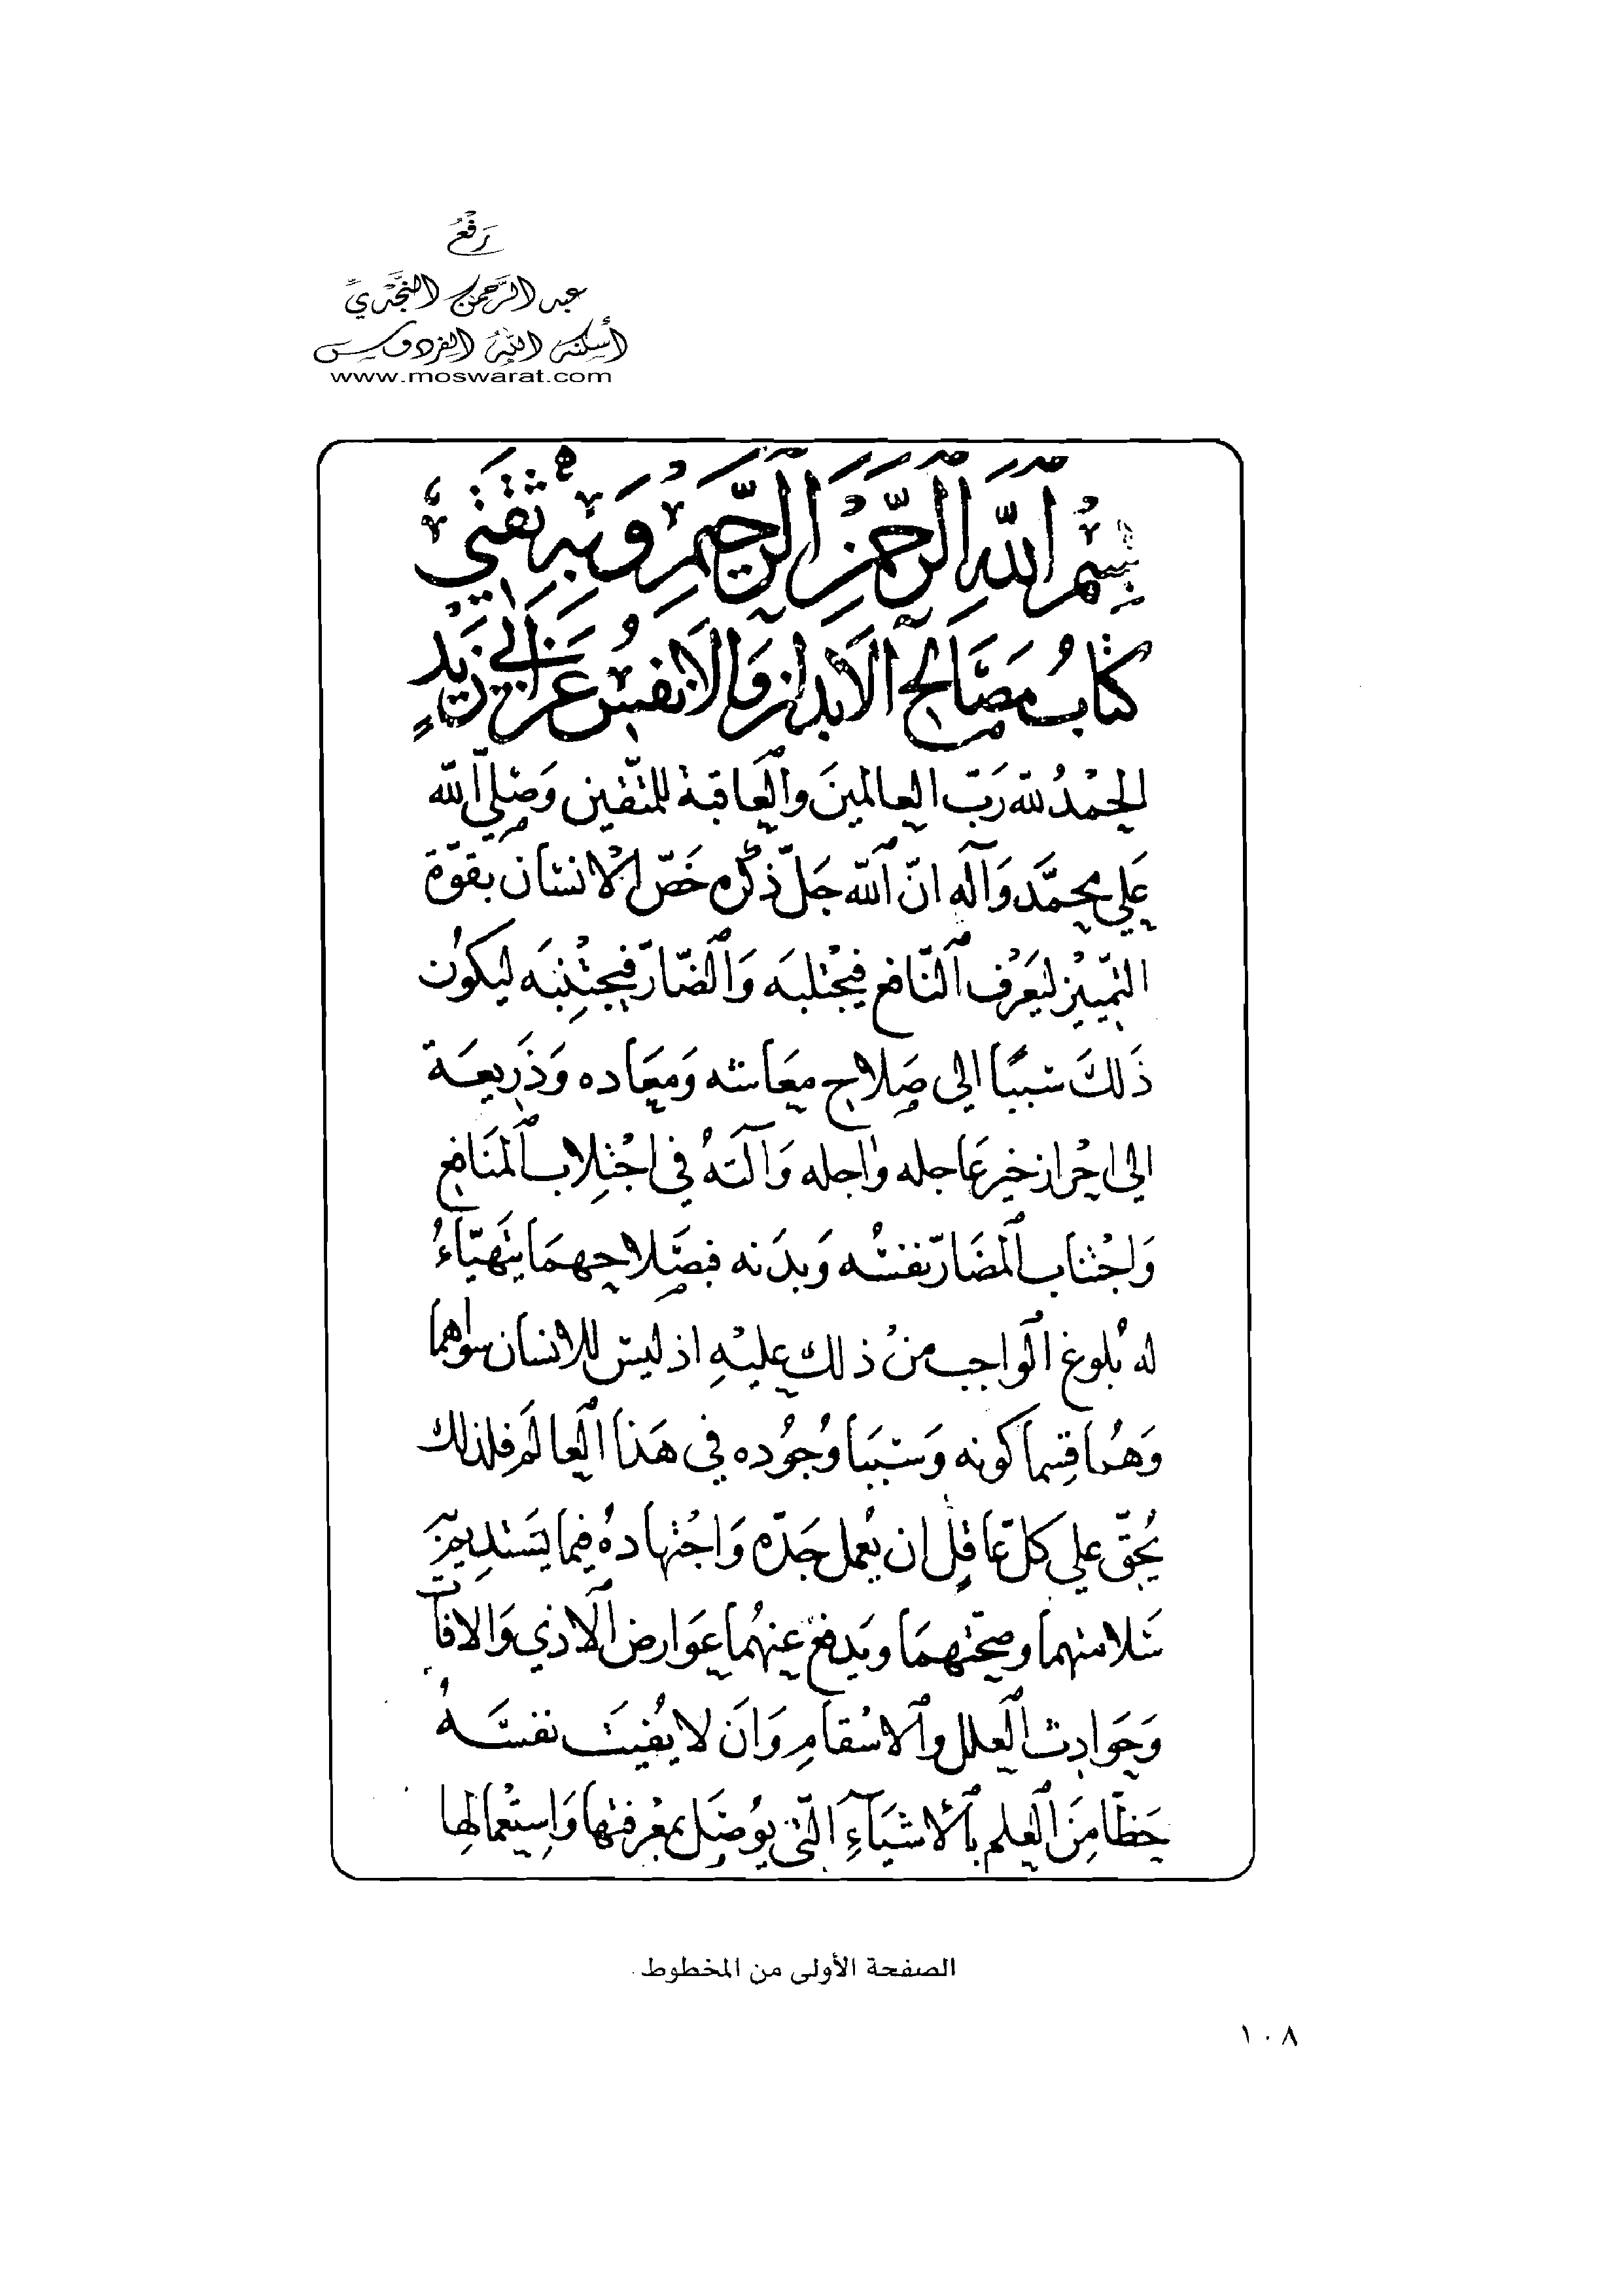 رَفْعُ
عبد الرَّحمن النَّجْديّ
أسكنه اللّٰه الفردوس
www.moswarat.com
بِسْمِ ٱللَّهِ ٱلرَّحْمٰنِ ٱلرَّحِيمِ وَبِهِ ثِقَتِي
كتابُ مَصَالح الأبدان والأنفس عَن أبي زَيدٍ
الحَمْدُ لله رَبّ العالمينَ وٱلعَاقبة للمتّقين وَصَلّى ٱلله
عَلى محمَّد وَآله انّ ٱلله جَلّ ذكره خَصّ الانسان بقوّة
التّمييز ليَعْرف ٱلنّافع فيجْتلبَه وَٱلضّارّ فيجْتنبَه ليكون
ذَلكَ سَببًا الى صَلاح معَاشه وَمَعَاده وَذَريعَة
الى احْراز خير عَاجله وآجله وَآلتهُ في اجْتلاب ٱلمنَافع
وَاجْتناب ٱلمضَارّ نفسُه وَبدَنه فبصَلاحهمَا يتَهيّاءُ
له بُلوغ ٱلواجب منْ ذلك عليْهِ اذ ليسَ للانسان سواهما
وَهُما قِسما كونه وَسَببَا وُجُوده في هَذا ٱلعالم فلذلك
يُحقّ على كلّ عَاقل ان يُعمل جَدّه وَاجْتهادهُ فيما يَسْتديمُ
سَلامتهما وصحّتهمَا ويَدفع عنهُما عوَارض ٱلاذي وَالافات
وَحَوَادث ٱلعلل وٱلاسْقام وَأن لا يُفيتَ نفسَهُ
حَظّا مِنَ ٱلعلم بٱلأشيَآءِ الّتى يوُصَل بمعْرفتها وَاستِعْمالها
الصفحة الأولى من المخطوط
١٠٨